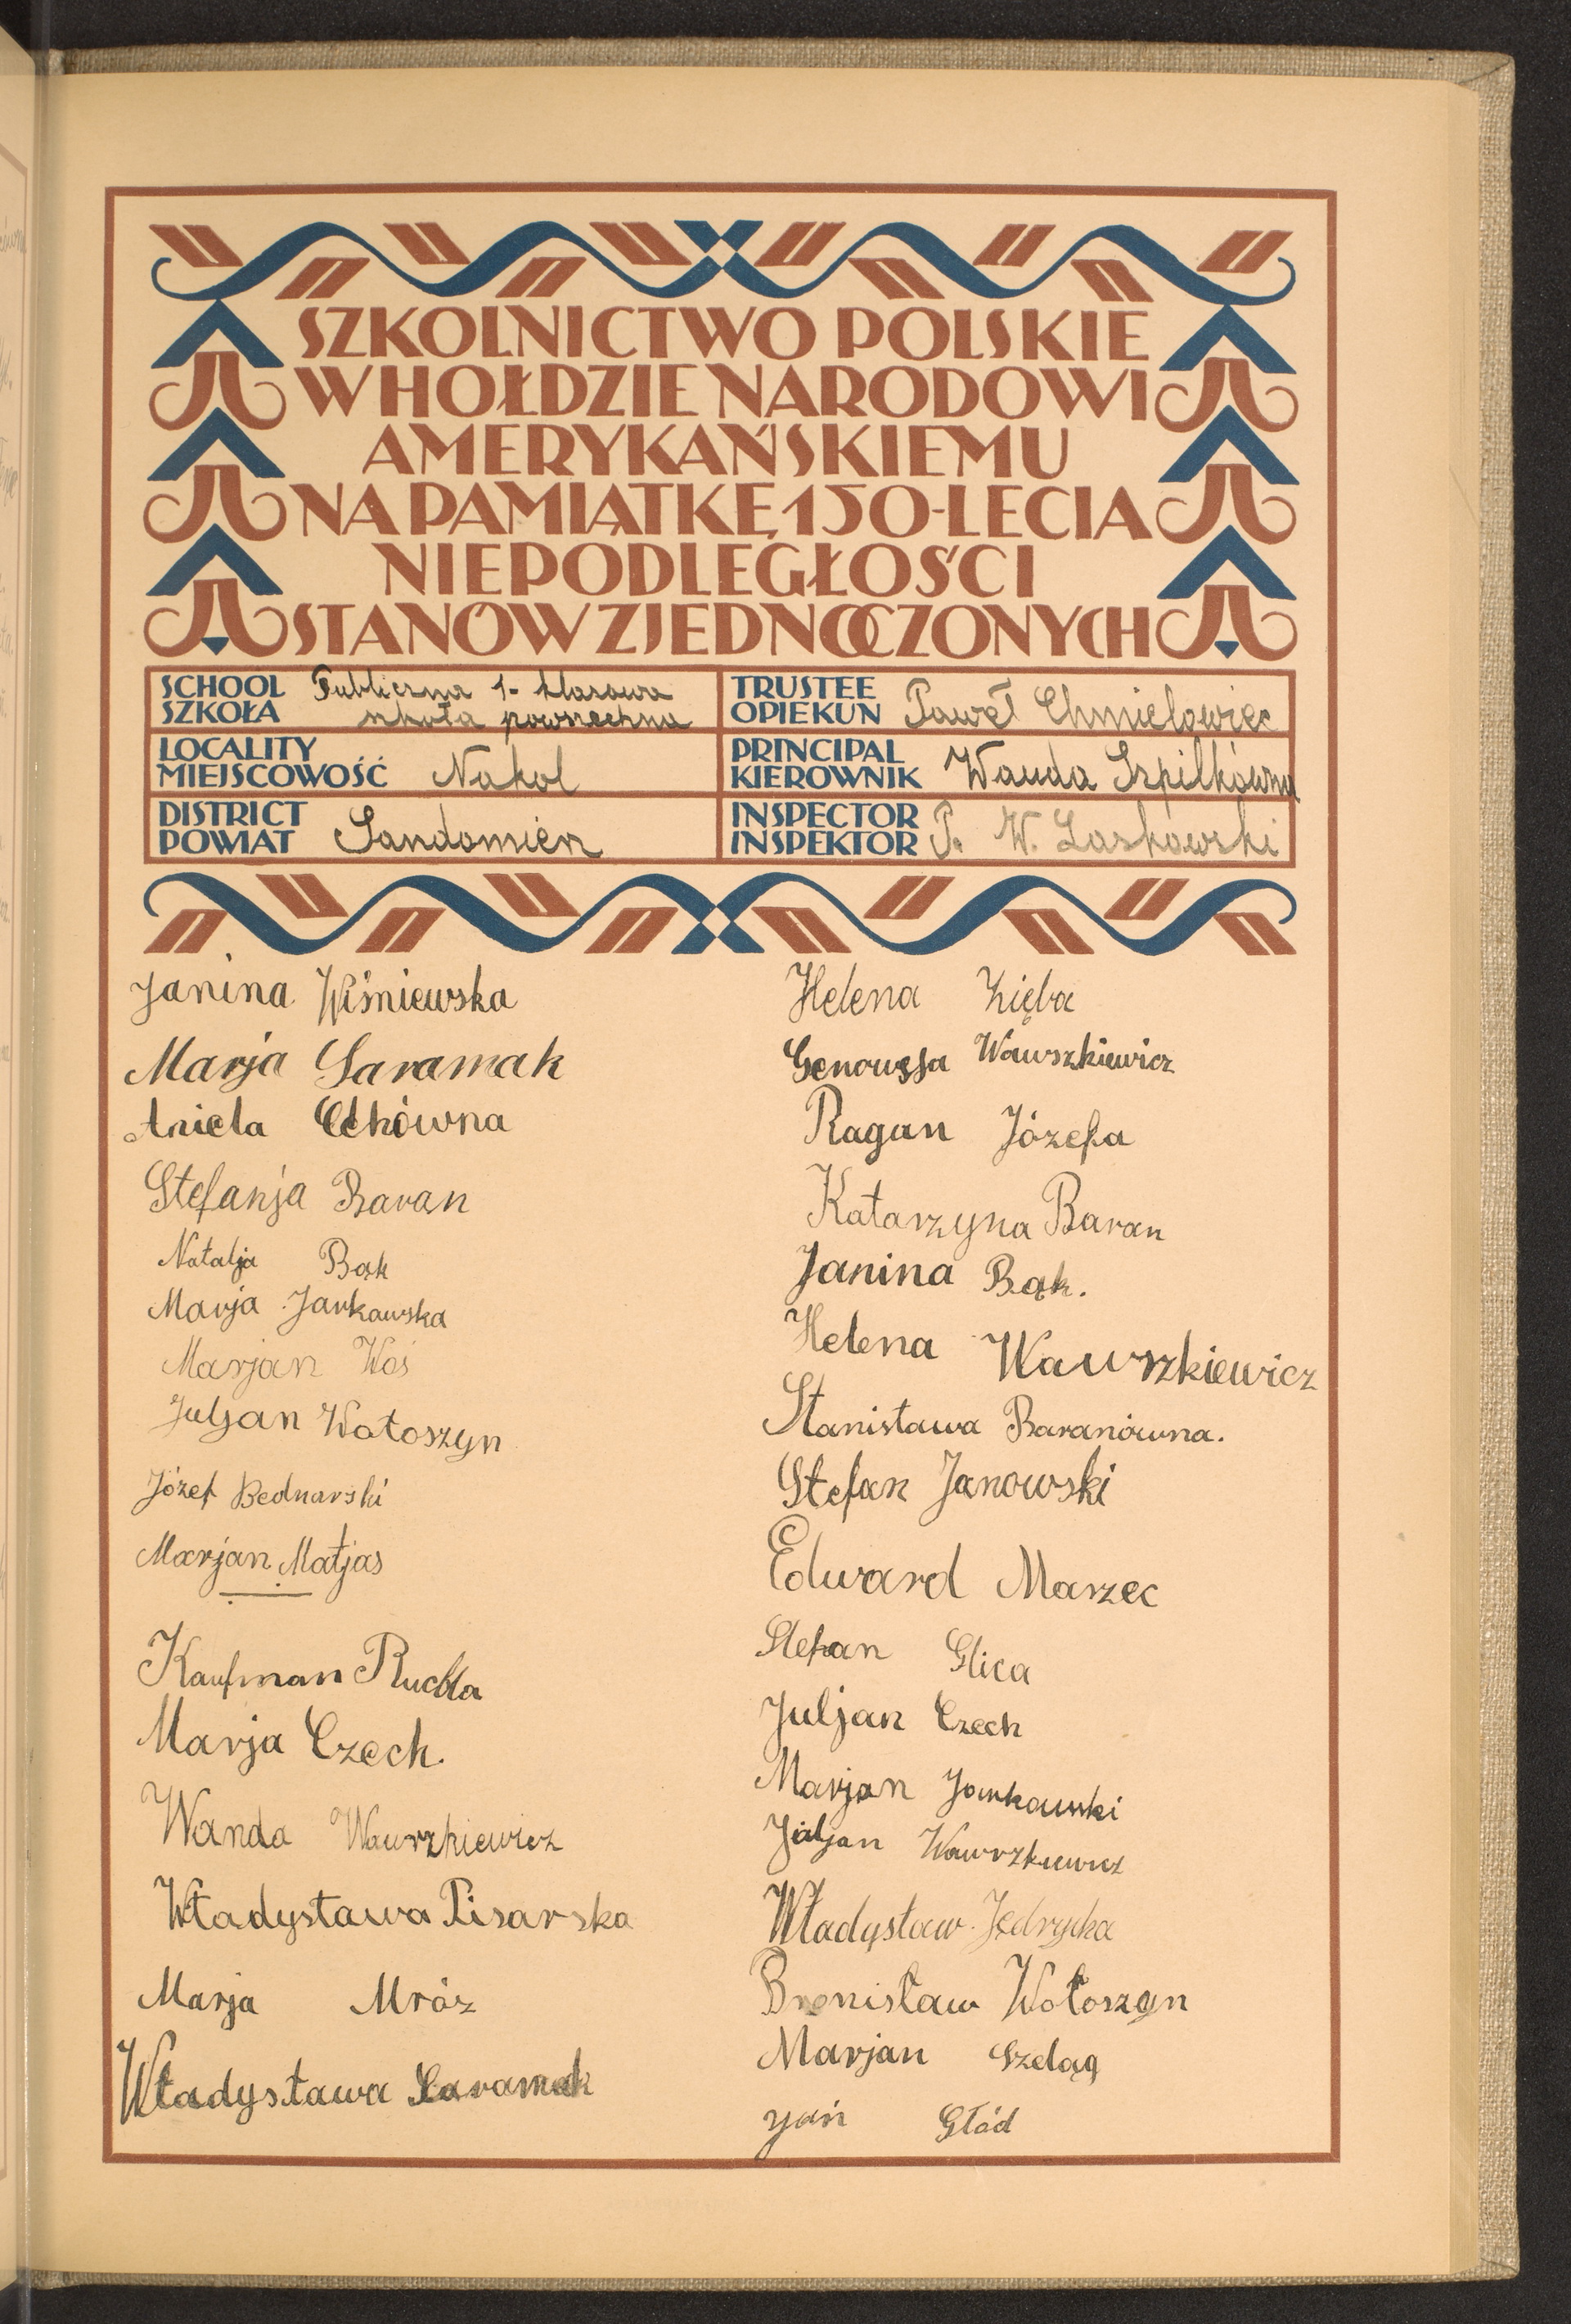 SZKOLNICTWO POLSKIE
W HOŁDZIE NARODOWI
AMERYKAŃSKIEMU
NA PAMIĄTKĘ 150-LECIA
NIEPODLEGŁOŚCI
STANÓW ZJEDNOCZONYCH
SCHOOL
SZKOŁA
Publiczna 1-klasowa
szkoła powszechna
TRUSTEE
OPIEKUN
Paweł Chmielowiec
LOCALITY
MIEJSCOWOŚĆ
Nakol
PRINCIPAL
KIEROWNIK
Wanda Szpilkówna
DISTRICT
POWIAT
Sandomierz
INSPECTOR
INSPEKTOR
P. W. Laskowski
Janina Wiśniewska
Marja Saramak
Aniela
Stefanja Baran
Natalja Bąk
Marja Jarkowska
Marjan Woś
Juljan Wołoszyn
Józef Bednarski
Marjan Matjas
Kaufman Ruchla
Marja Czech.
Wanda Wawrzkiewicz
Władysława Pisarska
Marja Mróz
Władysława Saramak
Helena Zięba
Genowefa Wawszkiewicz
Ragan Józefa
Katarzyna Baran
Janina Bąk.
Helena Wawrzkiewicz
Stanisława Baranówna.
Stefan Janowski
Edward Marzec
Stefan Glica
Juljan Czech
Marjan Jarkowski
Juljan Wawrzkiewicz
Władysław Jędrycka
Bronisław Wołoszyn
Marjan Szeląg
Jań Głód